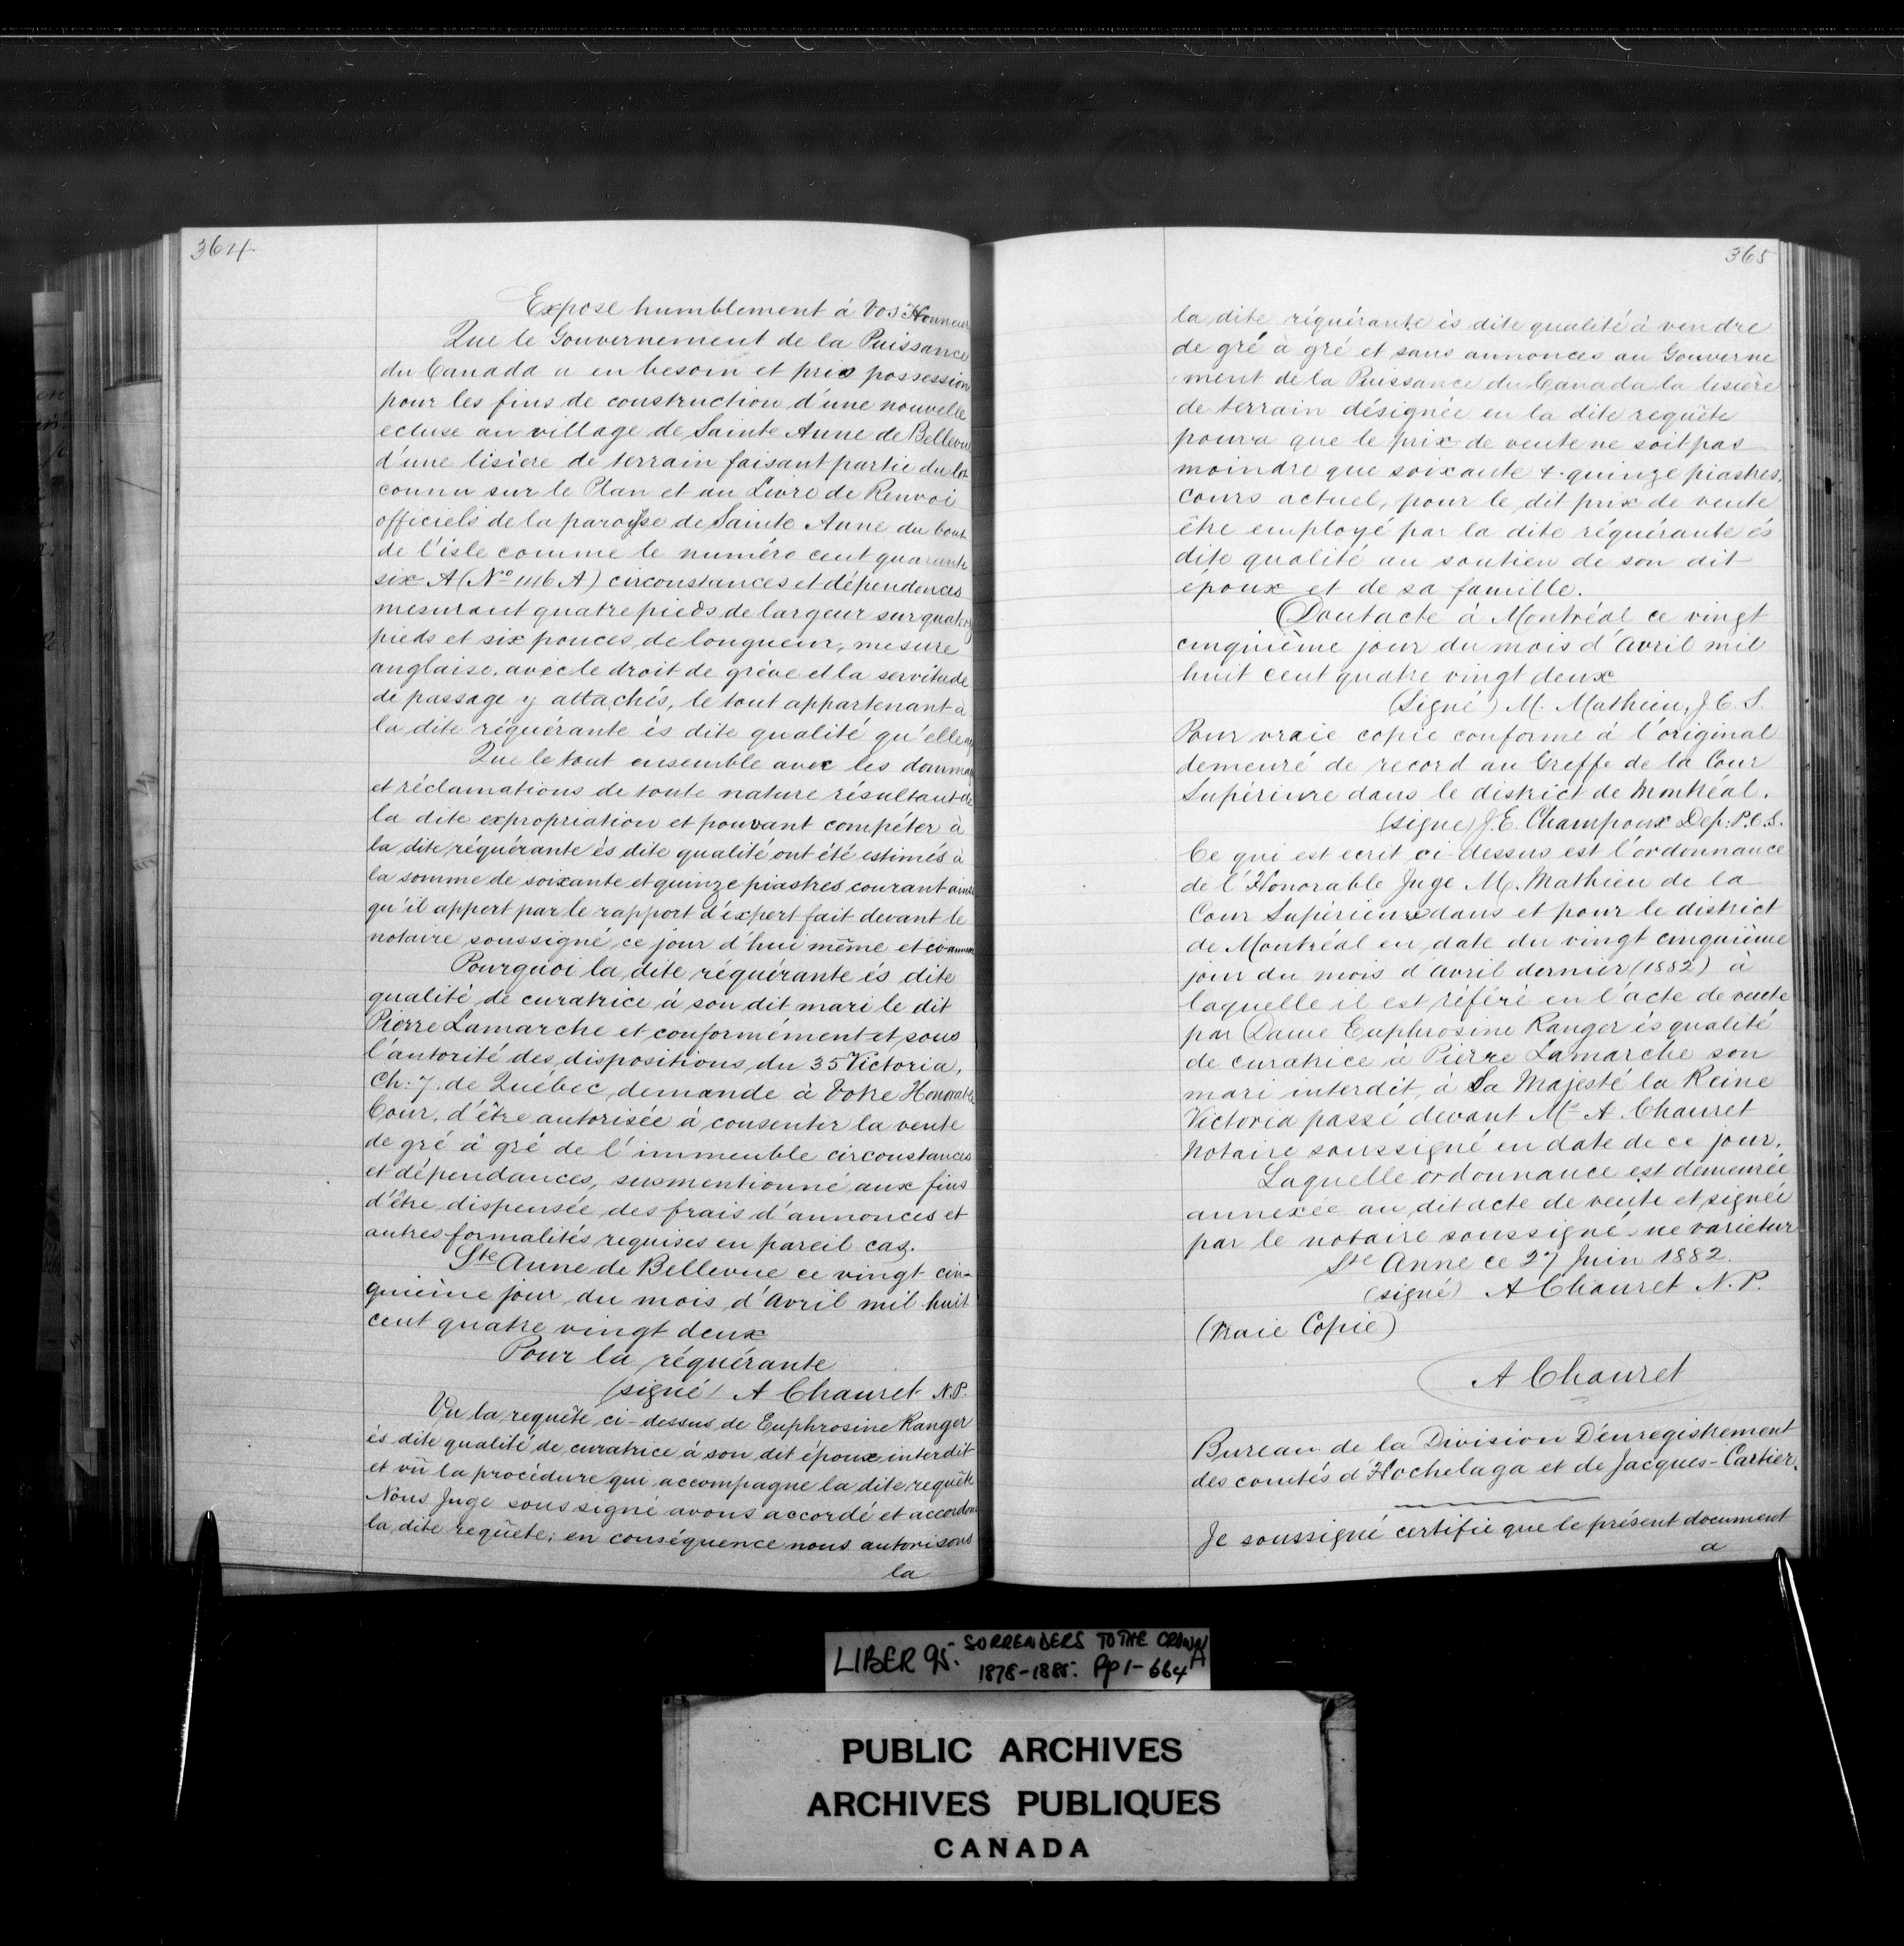 364.
Expose humblement à Vos Honneurs
Que le Gouvernement de la Puissance
du Canada a eu besoin et pris possession
pour les fins de construction d'une nouvelle
ecluse au village de Sainte Anne de Bellevue
d'une lisiere de terrain faisant partie du lot
connu sur le Plan et au Livre de Renvoi
officiels de la paroisse de Sainte Anne du bout
de l'isle comme le numéro cent quarante
six A (No 146 A) circonstances et dépendances
mesurant quatre pieds de largeur sur
pieds et six pouces de longueur, mesure
anglaise, avec le droit de grève et la servitude
de passage y attachés, le tout appartenant à
la dite réquérante ès dite qualité qu'elle
Que le tout ensemble avec les
et réclamations de toute nature résultant de
la dite expropriation et pouvant compéter à
la dite réquérante ès dite qualité ont été estimés à
la somme de soixante et quinze piastres courant ainsi
qu'il appert par le rapport d'expert fait devant le
notaire soussigné, ce jour d'hui même et
Pourquoi la dite réquérante ès dite
qualité de curatrice à son dit mari le dit
Pierre Lamarche et conformément et sous
l'autorité des dispositions du 35 Victoria,
Ch: 7. de Québec, demande à Votre Honorable
Cour, d'être autorisée à consentir la vente
de gré à gré de l'immeuble circonstances
et dépendances, susmentionné aux fins
d'être dispensée des frais d'annonces et
autres formalités requises en pareil cas.
Ste Anne de Bellevue ce vingt cin-
quième jour du mois d'Avril mil huit
cent quatre vingt deux
Pour la réquérante
(signé) A Chauret N.P.
Vu la requête ci-dessus de Euphrosine Ranger
ès dite qualité de curatrice à son dit époux interdit
et vû la procédure qui accompagne la dite requête
Nous Juge soussigné avons accordé et accordons
la dite requête; en conséquence nous autorisons
la
365
la dite réquérante ès dite qualité à vendre
de gré à gré et sans annonces au Gouverne
-ment de la Puissance du Canada la lisière
de terrain désignée en la dite requête
pourvu que le prix de vente ne soit pas
moindre que soixante & quinze piastres,
cours actuel, pour le dit prix de vente
être employé par la dite réquérante ès
dite qualité au soutien de son dit
epoux et de sa famille.
Dont acte à Montréal ce vingt
cinquième jour du mois d'Avril mil
huit cent quatre vingt deux
(Signé) M. Mathieu, J.C.S.
Pour vraie copie conforme à l'original
demeuré de record au Greffe de la Cour
Supérieure dans le district de Montréal.
(signé) J.E. Champoux Dep: P.C.S.
Ce qui est ecrit ci-dessus est l'ordonnance
de l'Honorable Juge M. Mathieu de la
Cour Supérieure dans et pour le district
de Montréal en date du vingt cinquième
jour du mois d'Avril dernier (1882) à
laquelle il est référé en l'acte de vente
par Dame Euphrosine Ranger ès qualité
de curatrice à Pierre Lamarche son
mari interdit, à Sa Majesté la Reine
Victoria passé devant Mr A. Chauret
Notaire soussigné en date de ce jour.
Laquelle ordonnance est demeurée
annexée au dit acte de vente et signée
par le notaire soussigné ne varietur
Ste Anne ce 27 Juin 1882.
(signé) A Chauret N.P.
(Vraie Copie)
A Chauret
Bureau de la Division D'enregistrement
des comtés d'Hochelaga et de Jacques-Cartier.
Je soussigné certifie que le présent document
a
LIBER 95. SORRENDERS TO THE CROWN
1878-1885. Pp 1-664 A
PUBLIC ARCHIVES
ARCHIVES PUBLIQUES
CANADA